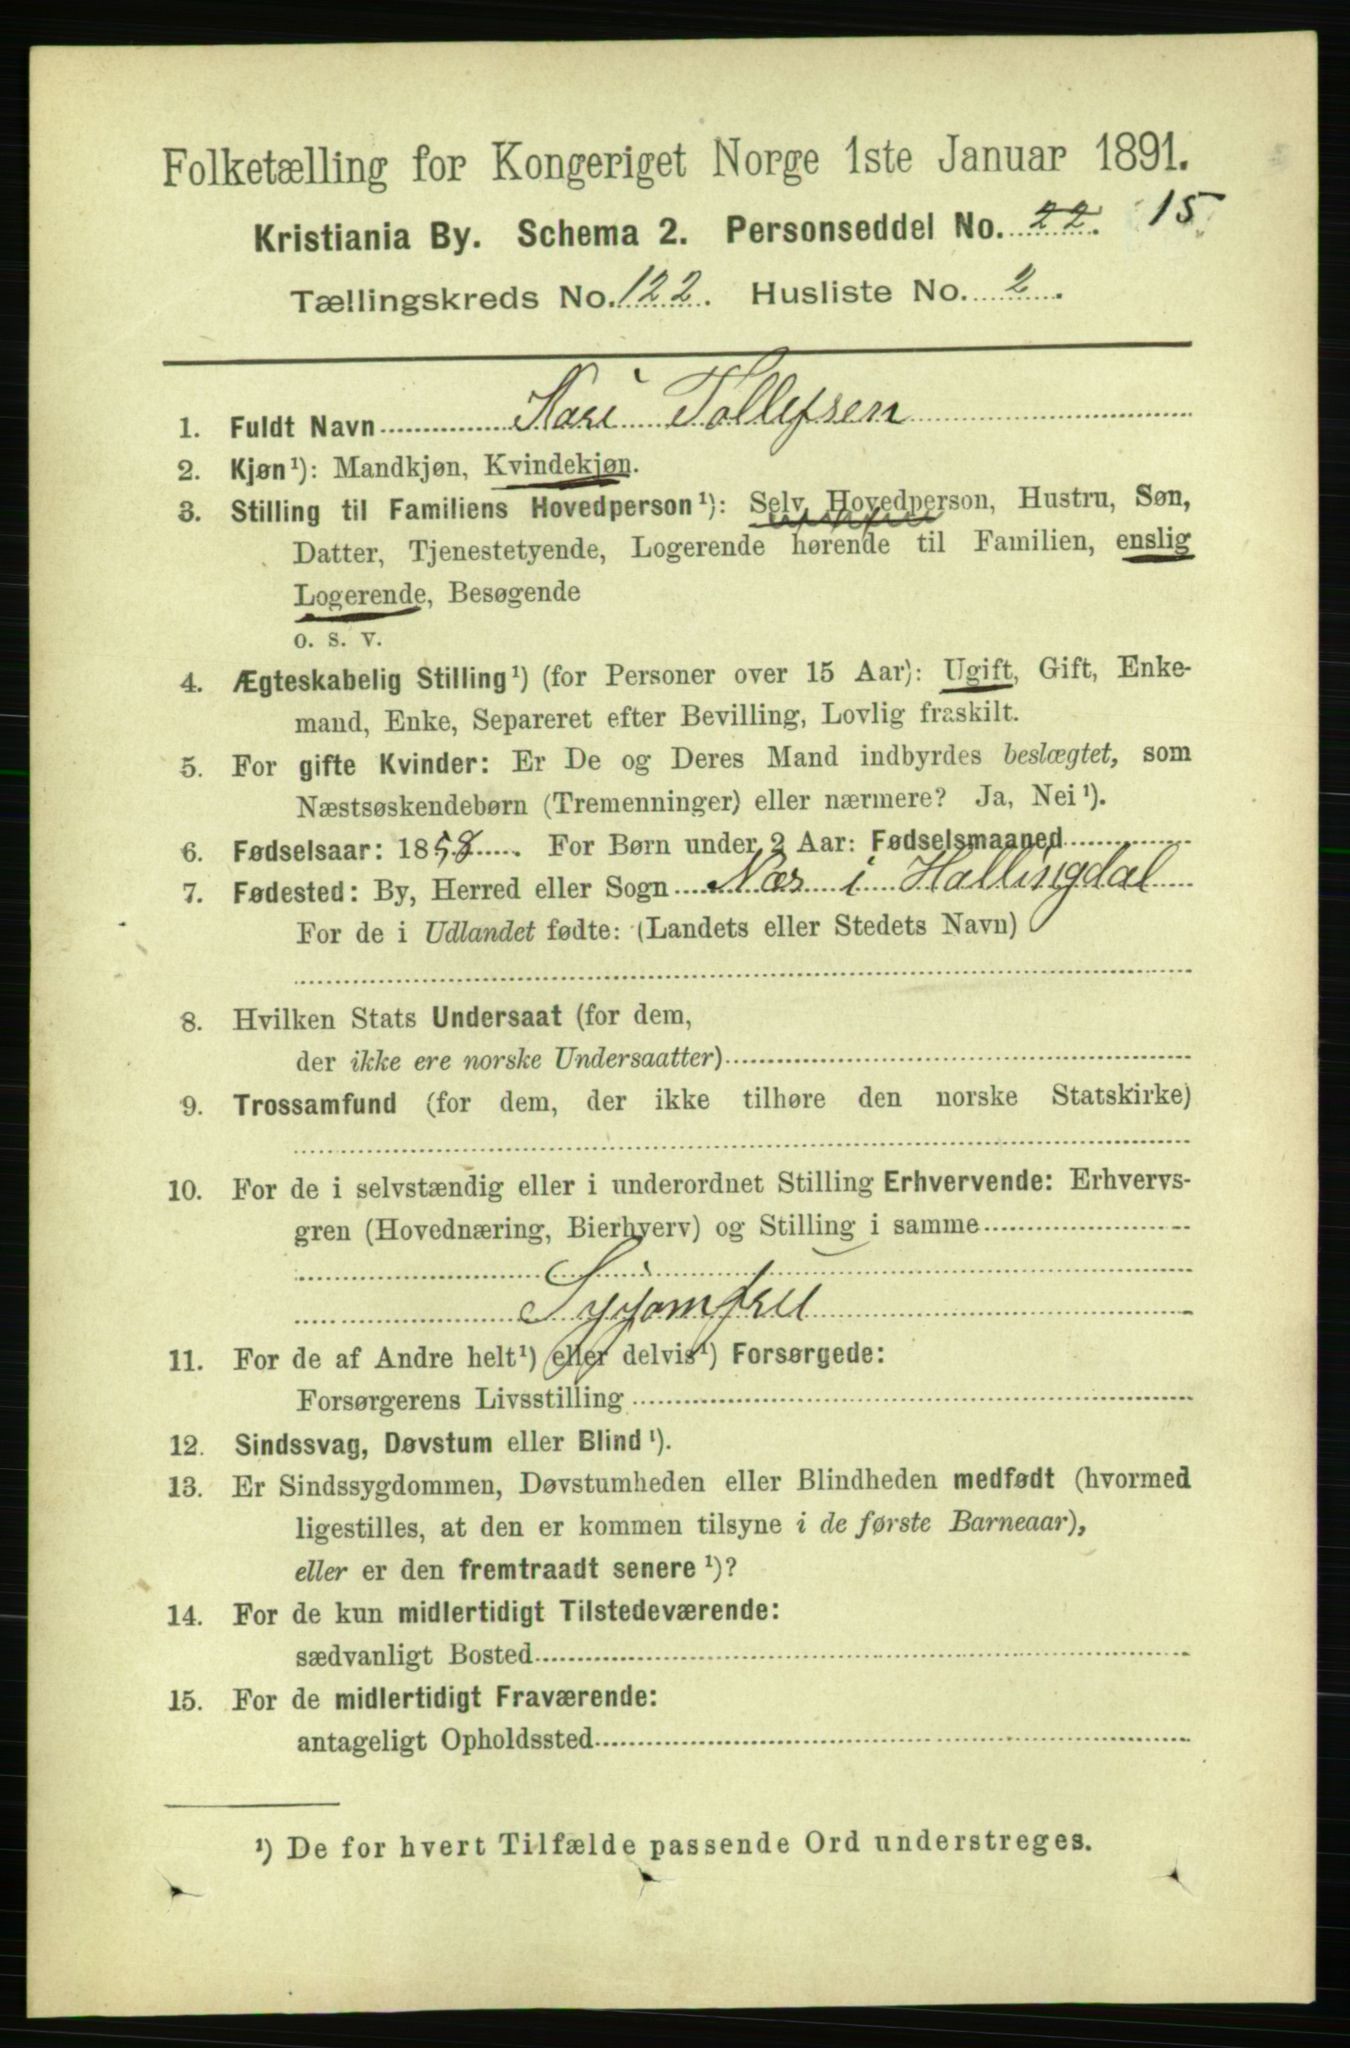 Folketælling for Kongeriget Norge 1ste Januar 1891.
Kristiania By. Schema 2. Personseddel No. 22. 15
Tællingskreds No. 122. Husliste No. 2.
1. Fuldt Navn Kari Tollefsen
2. Kjøn¹): Mandkjøn, Kvindekjøn.
3. Stilling til Familiens Hovedperson¹): Selv Hovedperson, Hustru, Søn,
Datter, Tjenestetyende, Logerende hørende til Familien, enslig
Logerende, Besøgende
o. s. v.
4. Ægteskabelig Stilling¹) (for Personer over 15 Aar): Ugift, Gift, Enke-
mand, Enke, Separeret efter Bevilling, Lovlig fraskilt.
5. For gifte Kvinder: Er De og Deres Mand indbyrdes beslægtet, som
Næstsøskendebørn (Tremenninger) eller nærmere? Ja, Nei¹).
6. Fødselsaar: 1858. For Børn under 2 Aar: Fødselsmaaned
7. Fødested: By, Herred eller Sogn Næs i Hallingdal
For de i Udlandet fødte: (Landets eller Stedets Navn)
8. Hvilken Stats Undersaat (for dem,
der ikke ere norske Undersaatter)
9. Trossamfund (for dem, der ikke tilhøre den norske Statskirke)
10. For de i selvstændig eller i underordnet Stilling Erhvervende: Erhvervs-
gren (Hovednæring, Bierhverv) og Stilling i samme
Syjomfru
11. For de af Andre helt¹) eller delvis¹) Forsørgede:
Forsørgerens Livsstilling
12. Sindssvag, Døvstum eller Blind¹).
13. Er Sindssygdommen, Døvstumheden eller Blindheden medfødt (hvormed
ligestilles, at den er kommen tilsyne i de første Barneaar),
eller er den fremtraadt senere¹)?
14. For de kun midlertidigt Tilstedeværende:
sædvanligt Bosted
15. For de midlertidigt Fraværende:
antageligt Opholdssted
¹) De for hvert Tilfælde passende Ord understreges.